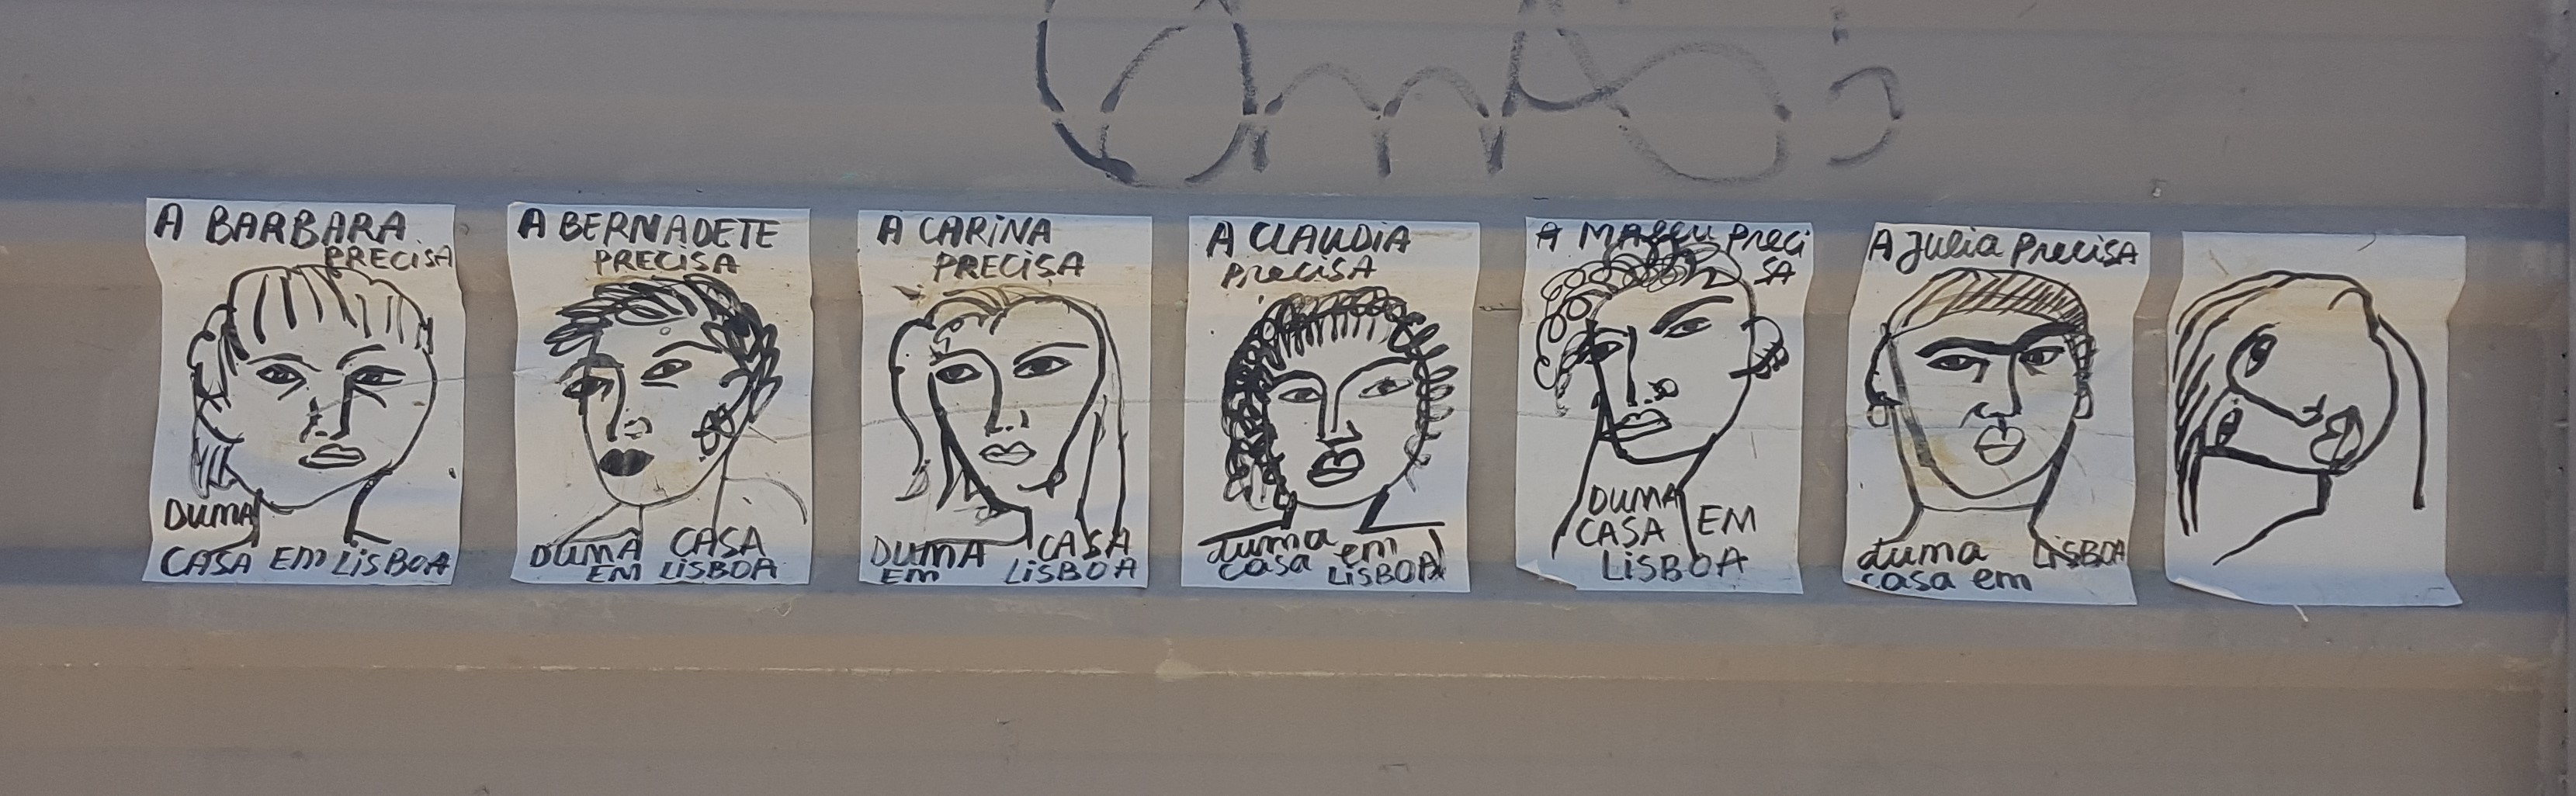 A BARBARA
PRECISA
DUMA
CASA EM LISBOA
A BERNADETE
PRECISA
DUMA CASA
EM LISBOA
A CARINA
PRECISA
DUMA CASA
EM LISBOA
A CLAUDIA
PRECISA
duma em
casa LISBOA
A PRECI
SA
DUMA
CASA EM
LISBOA
A Julia PRECISA
duma LISBOA
casa em